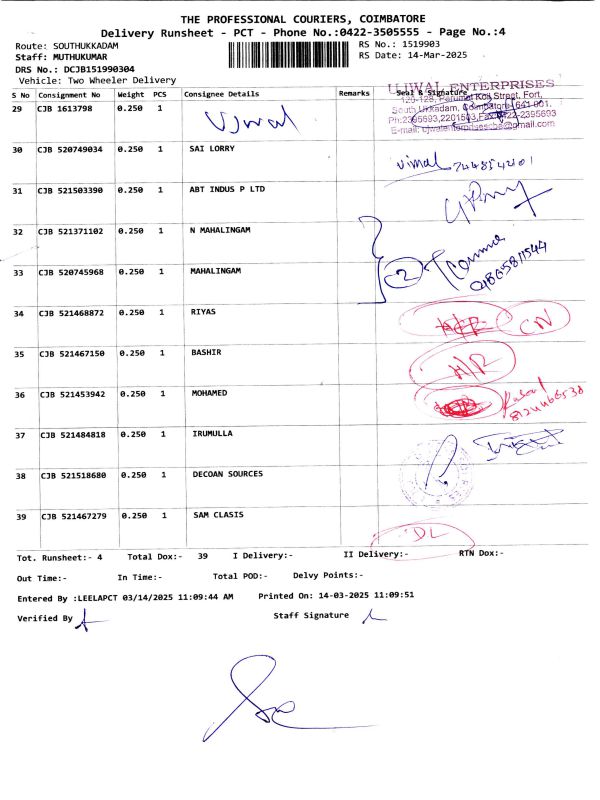 THE PROFESSIONAL COURIERS, COIMBATORE
Delivery Runsheet - PCT - Phone No.:0422-3505555 - Page No.:4
Route: SOUTHUKKADAM RS No.: 1519903
Staff: MUTHUKUMAR RS Date: 14-Mar-2025
DRS No.: DCJB151990304
Vehicle: Two Wheeler Delivery
S No Consignment No Weight PCS Consignee Details Remarks Seal & Signature
UJWAL ENTERPRISES
120-128, Perumal Koil Street, Fort,
South Ukkadam, Coimbatore-641 001.
29 CJB 1613798 0.250 1 Ujwal
30 CJB 520749034 0.250 1 SAI LORRY
vimal
31 CJB 521503390 0.250 1 ABT INDUS P LTD
32 CJB 521371102 0.250 1 N MAHALINGAM
2
33 CJB 520745968 0.250 1 MAHALINGAM
34 CJB 521468872 0.250 1 RIYAS CN
35 CJB 521467150 0.250 1 BASHIR H/R
36 CJB 521453942 0.250 1 MOHAMED
37 CJB 521484818 0.250 1 IRUMULLA
38 CJB 521518680 0.250 1 DECOAN SOURCES
39 CJB 521467279 0.250 1 SAM CLASIS DL
Tot. Runsheet:- 4 Total Dox:- 39 I Delivery:- II Delivery:- RTN Dox:-
Out Time:- In Time:- Total POD:- Delvy Points:-
Entered By :LEELAPCT 03/14/2025 11:09:44 AM Printed On: 14-03-2025 11:09:51
Verified By Staff Signature